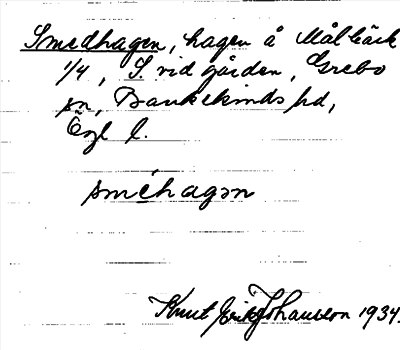 Smedhagen, hagen å Målbäck
1/4, S. vid gården, Grebo
sn, Bankekinds hd,
Ögl l.
smèhagən
Knut Erik Johansson 1934.